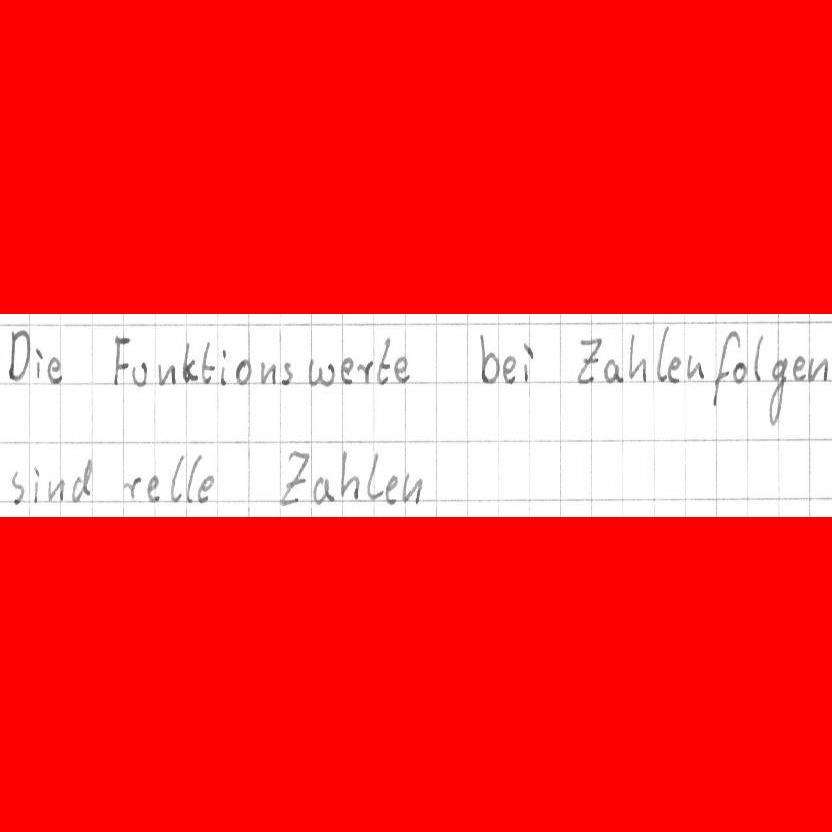 Die Funktionswerte bei Zahlenfolgen
sind relle Zahlen